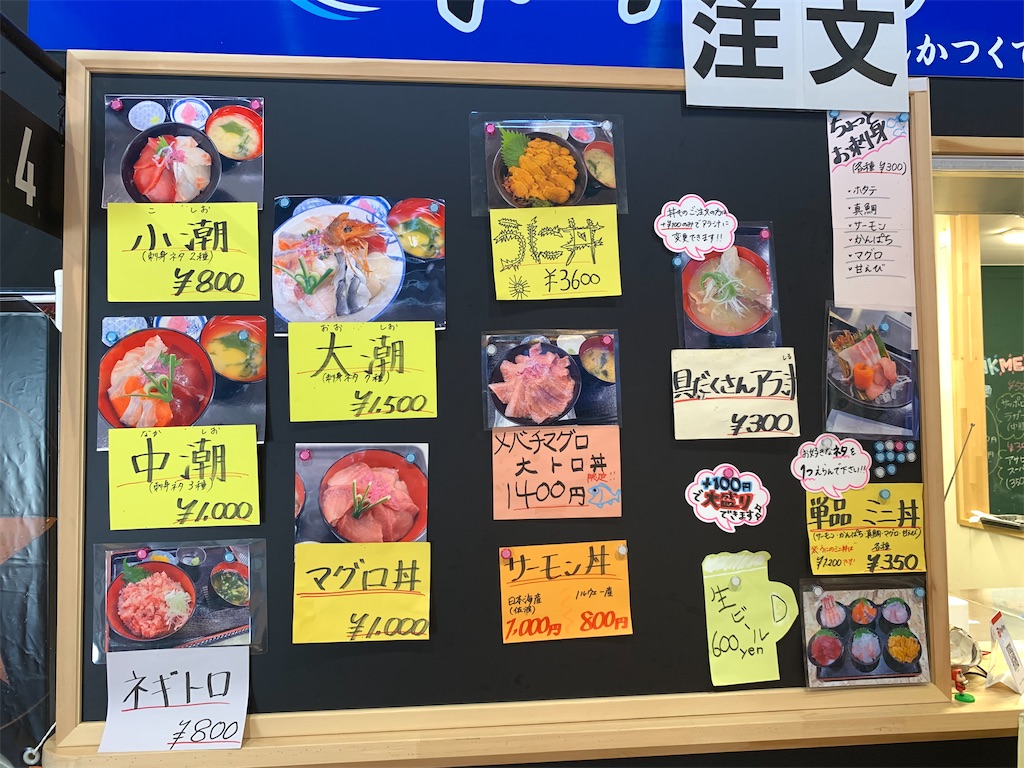 注文
んかつくて
4
こしお
小潮
(刺身ネタ2種)
¥800
なかしお
中潮
(刺身ネタ3種)
¥1.000
ネギトロ
¥800
おおしお
大潮
(刺身ネタ7種)
¥1.500
マグロ丼
¥1.000
うに丼
¥3600
メバチマグロ
大トロ丼
限定!!
1400円
サーモン丼
日本海産
(佐渡)
1,000円
ノルウェー産
800円
丼ものご注文の方は
+¥100のみでアラ汁に
変更できます!!
しる
具だくさんアラ汁
¥300
+100円
で大盛り
できます
生ビール
600yen
ちょっと
お刺身
(各種¥300)
・ホタテ
・真鯛
・サーモン
・かんぱち
・マグロ
・甘えび
お好きなネタを
1つえらんで下さい!!
単品ミニ丼
(サーモン・かんぱち・真鯛・マグロ・甘えび)
※うにのミニ丼は
¥1.200です!
各種
¥350